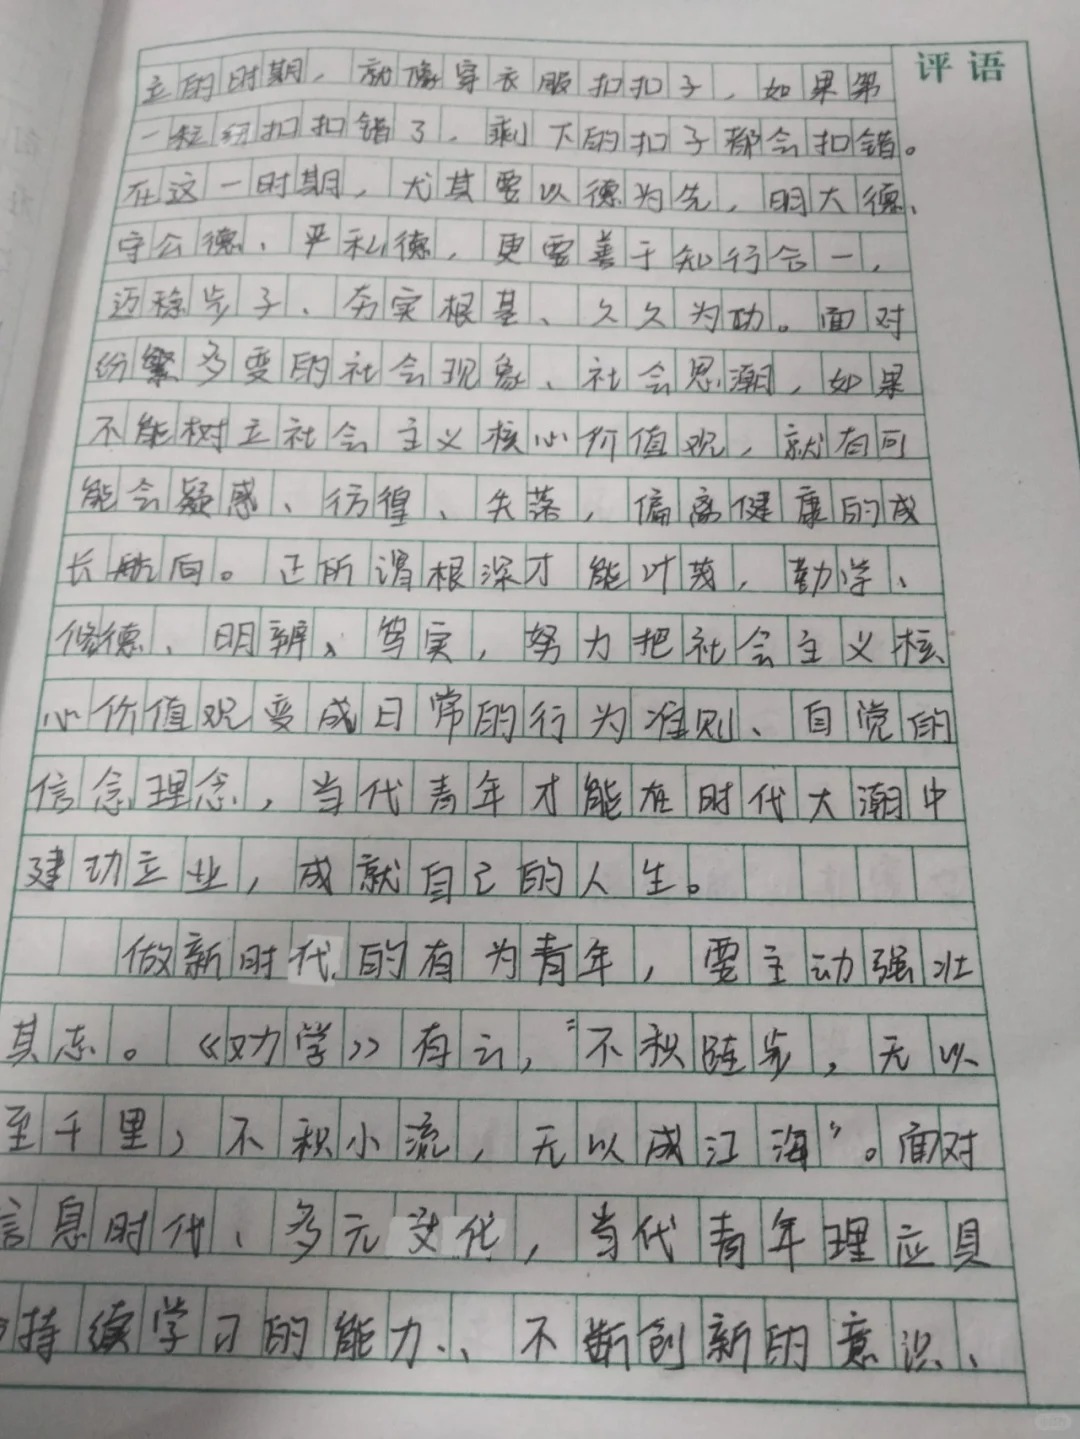 评语
立的时期，就像穿衣服扣扣子，如果第
一粒纽扣扣错了，剩下的扣子都会扣错。
在这一时期，尤其要以德为先，明大德、
守公德、严私德，更要善于知行合一，
迈稳步子、夯实根基、久久为功。面对
纷繁多变的社会现象、社会思潮，如果
不能树立社会主义核心价值观，就有可
能会疑惑、彷徨、失落，偏离健康的成
长航向。正所谓根深才能叶茂，勤学、
修德、明辨、笃实，努力把社会主义核
心价值观变成日常的行为准则、自觉的
信念理念，当代青年才能在时代大潮中
建功立业，成就自己的人生。
做新时代的有为青年，要主动强壮
其志。《劝学》有云，“不积跬步，无以
至千里，不积小流，无以成江海”。面对
信息时代、多元文化，当代青年理应具
持续学习的能力、不断创新的意识、